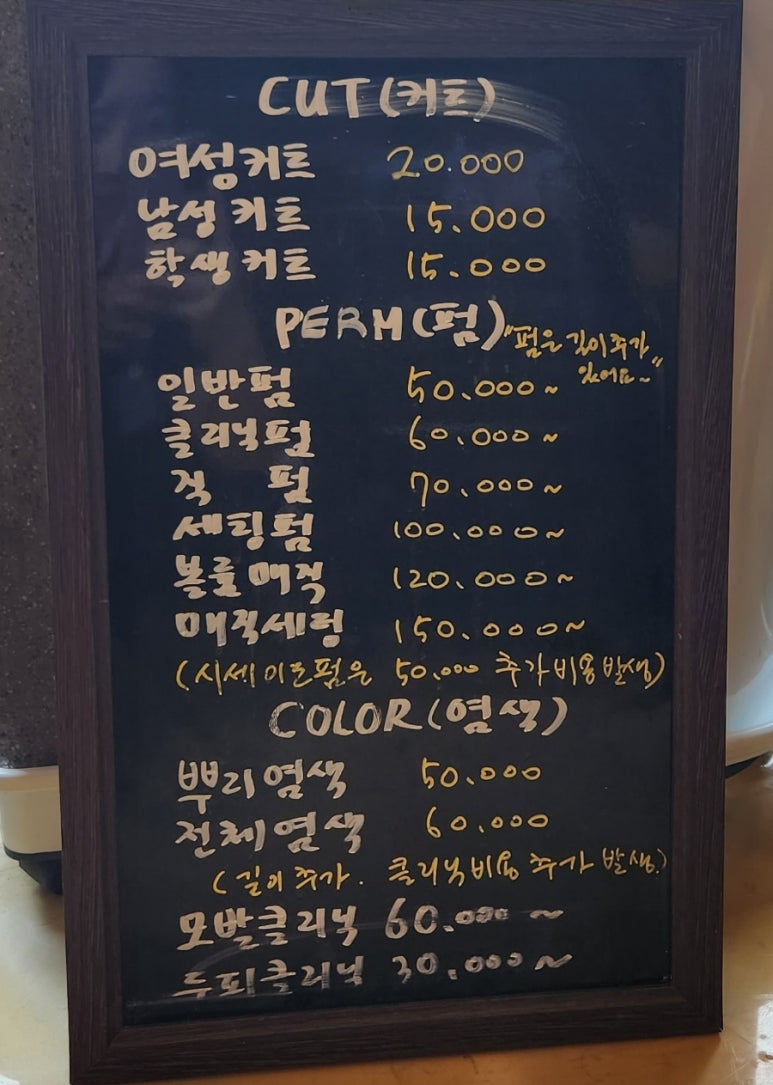 CUT(커트)
여성커트 20.000
남성커트 15.000
학생커트 15.000
PERM(펌) "펌은 길이추가 있어요~"
일반펌 50.000~
클리닉펌 60.000~
직 펌 70.000~
세팅펌 100.000~
볼륨매직 120.000~
매직세팅 150.000~
(시세이도펌은 50.000 추가비용발생)
COLOR(염색)
뿌리염색 50.000
전체염색 60.000
(길이추가. 클리닉비용 추가 발생.)
모발클리닉 60.000~
두피클리닉 30.000~